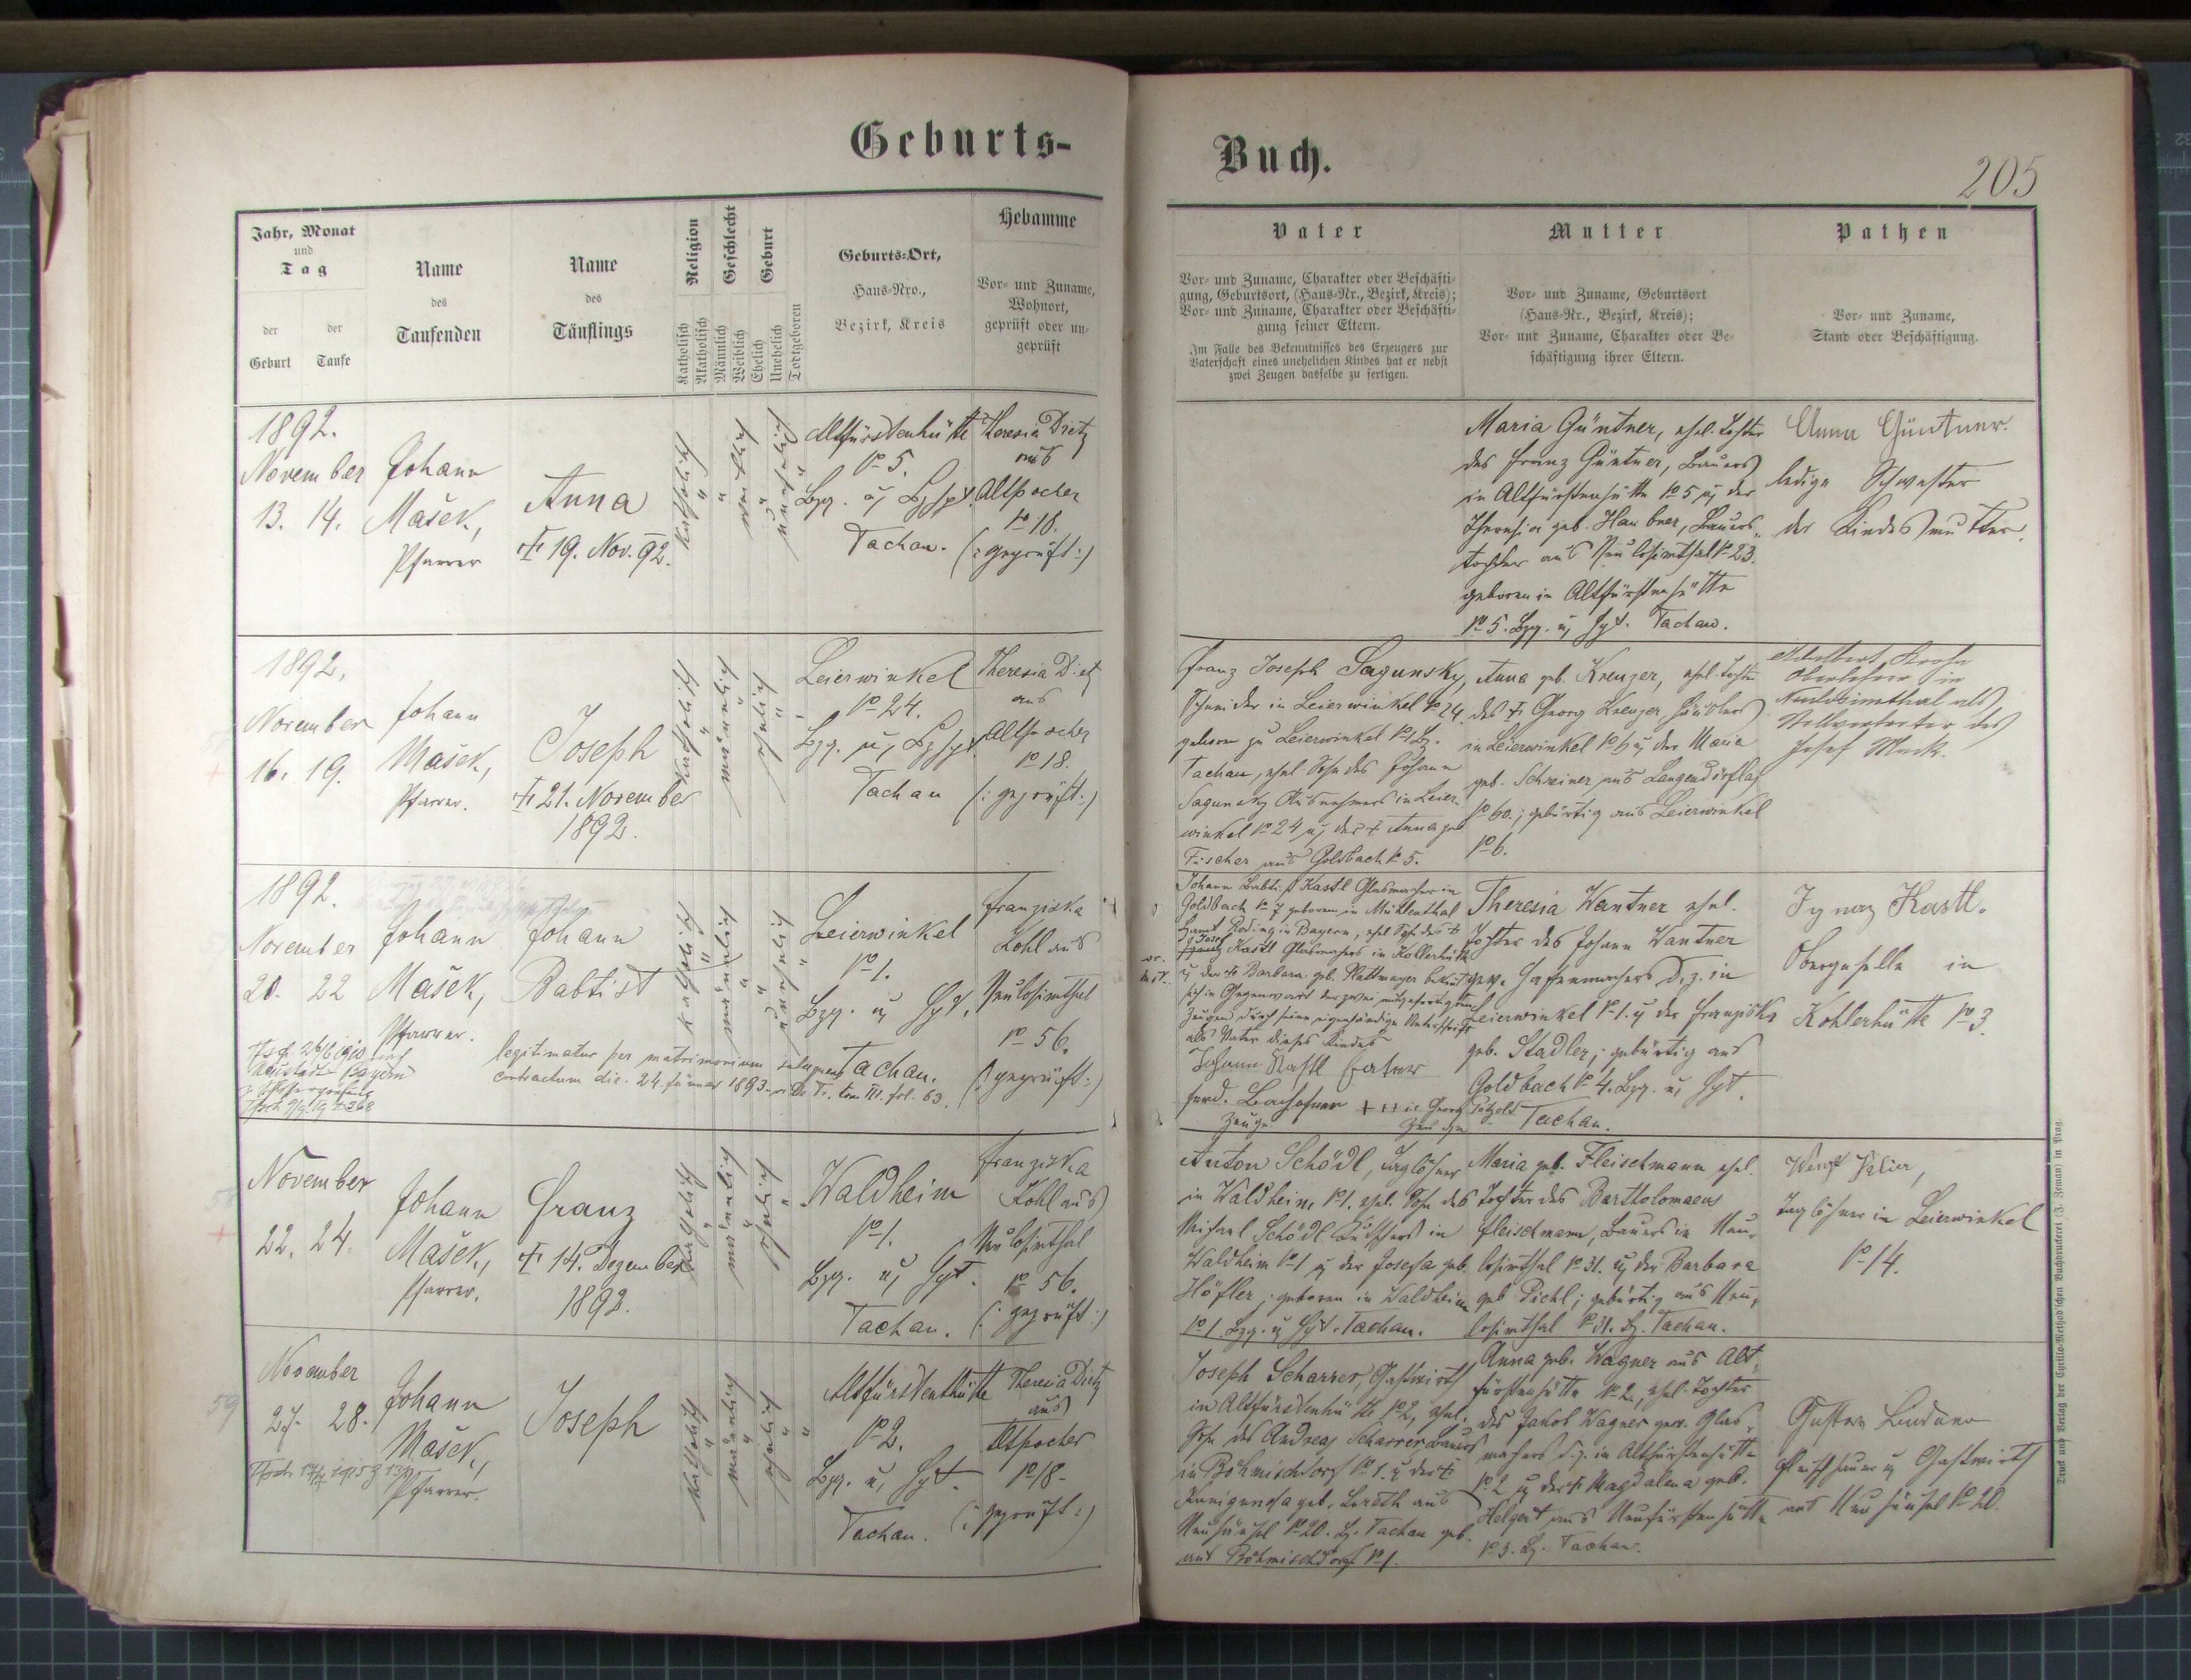 Geburts-
Buch.
205
Jahr, Monat
und
Tag
der
Geburt
der
Taufe
Name
des
Taufenden
Name
des
Täuflings
Religion
Katholisch
Akatholisch
Geschlecht
Männlich
Weiblich
Geburt
Ehelich
Unehelich
Todtgeboren
Geburts-Ort,
Haus-Nro.,
Bezirk, Kreis
Hebamme
Vor- und Zuname,
Wohnort,
geprüft oder un-
geprüft
Vater
Vor- und Zuname, Charakter oder Beschäfti-
gung, Geburtsort, (Haus-Nr., Bezirk, Kreis);
Vor- und Zuname, Charakter oder Beschäfti-
gung seiner Eltern.
Im Falle des Bekenntnisses des Erzeugers zur
Vaterschaft eines unehelichen Kindes hat er nebst
zwei Zeugen dasselbe zu fertigen.
Mutter
Vor- und Zuname, Geburtsort
(Haus-Nr., Bezirk, Kreis);
Vor- und Zuname, Charakter oder Be-
schäftigung ihrer Eltern.
Pathen
Vor- und Zuname,
Stand oder Beschäftigung.
1892.
November
13. 14.
Johann
Mašek,
Pfarrer
Anna
† 19. Nov. 92.
katholisch
weiblich
unehelich
Altfürstenhütte
No 5.
Tachau.
Theresia Dietz
aus
Altpocher
No 18.
(: geprüft :)
Maria Güntner, ehel. Tochter
des Franz Güntner, Bauers
in Altfürstenhütte No 5 u. der
Theresia geb. Haubner, Bauers-
tochter aus Neulosimthal No 23.
geboren in Altfürstenhütte
No 5. Bzg. u. Hpt. Tachau.
Anna Güntner.
ledige Schwester
der Kindesmutter.
1892.
November
16. 19.
Johann
Mašek,
Pfarrer.
Joseph
† 21. November
1892.
katholisch
männlich
ehelich
Leierwinkel
No 24.
Tachau
Theresia Dietz
aus
Altpocher
No 18.
(: geprüft :)
Franz Joseph Sagunsky,
Schneider in Leierwinkel No 24.
geboren zu Leierwinkel No 1 Bz.
Tachau, ehel. Sohn des Johann
Sagunsky Ausnehmers in Leier-
winkel No 24 u. der † Anna geb.
Fischer aus Goldbach No 5.
Anna geb. Kreuzer, ehel. Tochter
des † Georg Kreuzer, Häuslers
in Leierwinkel No 6 u. der Maria
geb. Schreiner aus Langendörflas
No 60.; gebürtig aus Leierwinkel
No 6.
Oberlehrer in
Neulosimthal als
Stellvertreter des
Josef
1892.
November
20. 22
Johann
Mašek,
Pfarrer.
Johann
Babtist
katholisch
männlich
unehelich
Leierwinkel
No 1.
Bzg. u. Hpt.
Tachau.
Franziska
Kohl aus
Neulosimthal
No 56.
(: geprüft :)
legitimatus per matrimonium subsequens
contractum die. 24. Jänner 1893. Tom III. fol. 63.
Johann Babtist Kastl Glasmacher in
Goldbach No 7 geboren in Mühlenthal
Roding in Bayern, ehel. Sohn des †
Josef
Kastl Glasmachers in Kollerhütte
u. der † Barbara geb. Plattmayer bekennt
sich in Gegenwart der zwei mitgefertigten
Zeugen durch seine eigenhändige Unterschrift
als Vater dieses Kindes
Johann Kastl Vater
Zeuge
Georg
Zeuge
Theresia Wantner ehel.
Tochter des Johann Wantner
gew. d. z. in
Leierwinkel No 1. u. der Franziska
geb. Stadler; gebürtig aus
Goldbach No 4. Bzg. u. Hpt.
Tachau.
Ignaz Kastl.
Obergeselle in
Kohlerhütte No 3.
November
22. 24.
Johann
Mašek,
Pfarrer.
Franz
† 14. Dezember
1892.
katholisch
männlich
ehelich
Waldheim
No 1.
Bzg. u. Hpt.
Tachau.
Franziska
Kohl aus
Neulosimthal
No 56.
(: geprüft :)
Anton Schödl, Taglöhner
in Waldheim No 1. ehel. Sohn des
Michael Schödl Kutschers in
Waldheim No 1 u. der Josefa geb.
Höfler; geboren in Waldheim
No 1. Bzg. u. Hpt. Tachau.
Maria geb. Fleischmann ehel.
Tochter des Bartholomaeus
Fleischmann, Bauers in Neu-
losimthal No 31. u. der Barbara
geb. Pichl; gebürtig aus Neu-
losimthal No 31. Bz. Tachau.
Taglöhner in Leierwinkel
No 14.
59
November
27. 28.
Johann
Mašek,
Pfarrer.
Joseph
katholisch
männlich
ehelich
Altfürstenhütte
No 2.
Bzg. u. Hpt.
Tachau.
Theresia Dietz
aus
Altpocher
No 18.
(: geprüft :)
Joseph Scharrer, Gastwirth
in Altfürstenhütte No 2, ehel.
Sohn des Andreas Scharrer, Bauers
in Böhmischdorf No 1. u. der †
Kunigunda geb. aus
Neuhäusl No 20. Bz. Tachau geb.
aus Böhmischdorf No 1.
Anna geb. Wagner aus Alt-
fürstenhütte No 2, ehel. Tochter
des Jakob Wagner gew. Glas-
machers d. z. in Altfürstenhütte
No 2 u. der † Magdalena geb.
Helgert aus Neufürstenhütte
No 3. Bz. Tachau.
Gustav
Fleischhauer u. Gastwirth
aus Neuhäusel No 20.
Druck und Verlag der Cyrillo-Method'schen Buchdruckerei (J. Zeman) in Prag.